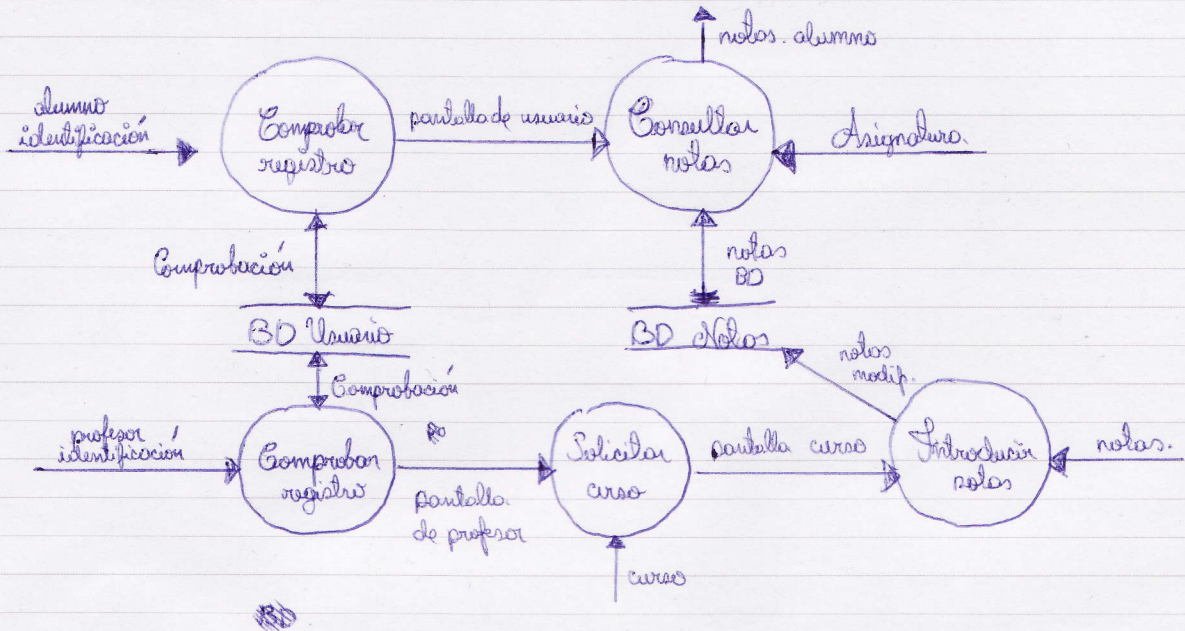 notas. alumno
alumno
identificación
Comprobar
registro
pantalla de usuario
Consultar
notas
Asignatura.
Comprobación
notas
BD
BD Usuario
BD Notas
notas
modif.
Comprobación
profesor
identificación
Comprobar
registro
pantalla
de profesor
Solicitar
curso
pantalla curso
Introducir
notas
notas.
curso